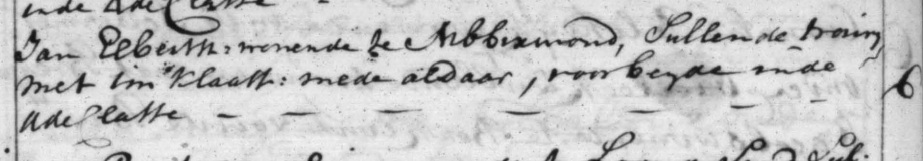 inde 4de Classe
Jan Elbertsz: wonende te Abbixwoud, Sullende trouw
met Im Klaasz: mede aldaar, voor beyde inde
4de Classe — — — — — — — 6